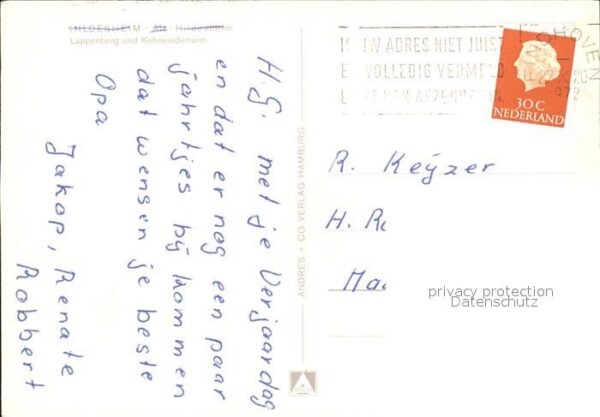 HILDESHEIM - Alt - Hildesheim
Lappenberg und Kehrwiederturm
H.G. met je Verjaardag
en dat er nog een paar
jahrtjes bij kommen
dat wensen je beste
Opa
Jakop, Renate
Robbert
ANDRES + CO VERLAG HAMBURG
UW ADRES NIET JUIST
VOLLEDIG VERMELD
DHOVEN
30 C
NEDERLAND
R. Keÿzer
H.
privacy protection
Datenschutz